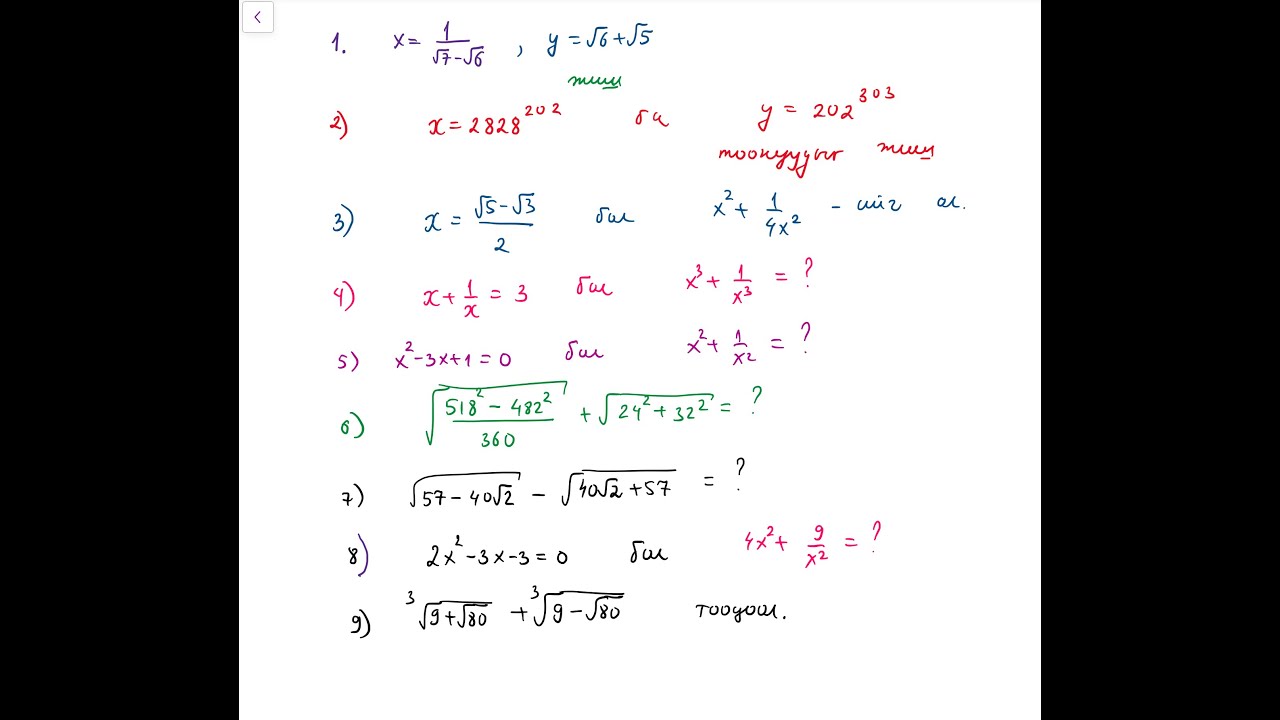 1. x = 1/(√7-√6) , y = √6+√5
жиш
2) x = 2828^202 ба y = 202^303
тоонуудыг жиш
3) x = (√5-√3)/2 бол x^2 + 1/(4x^2) - ийг ол.
4) x + 1/x = 3 бол x^3 + 1/x^3 = ?
5) x^2-3x+1=0 бол x^2 + 1/x^2 = ?
6) √((518^2-482^2)/360) + √(24^2+32^2) = ?
7) √(57-40√2) - √(40√2+57) = ?
8) 2x^2-3x-3=0 бол 4x^2 + 9/x^2 = ?
9) ∛(9+√80) + ∛(9-√80) тооцоол.